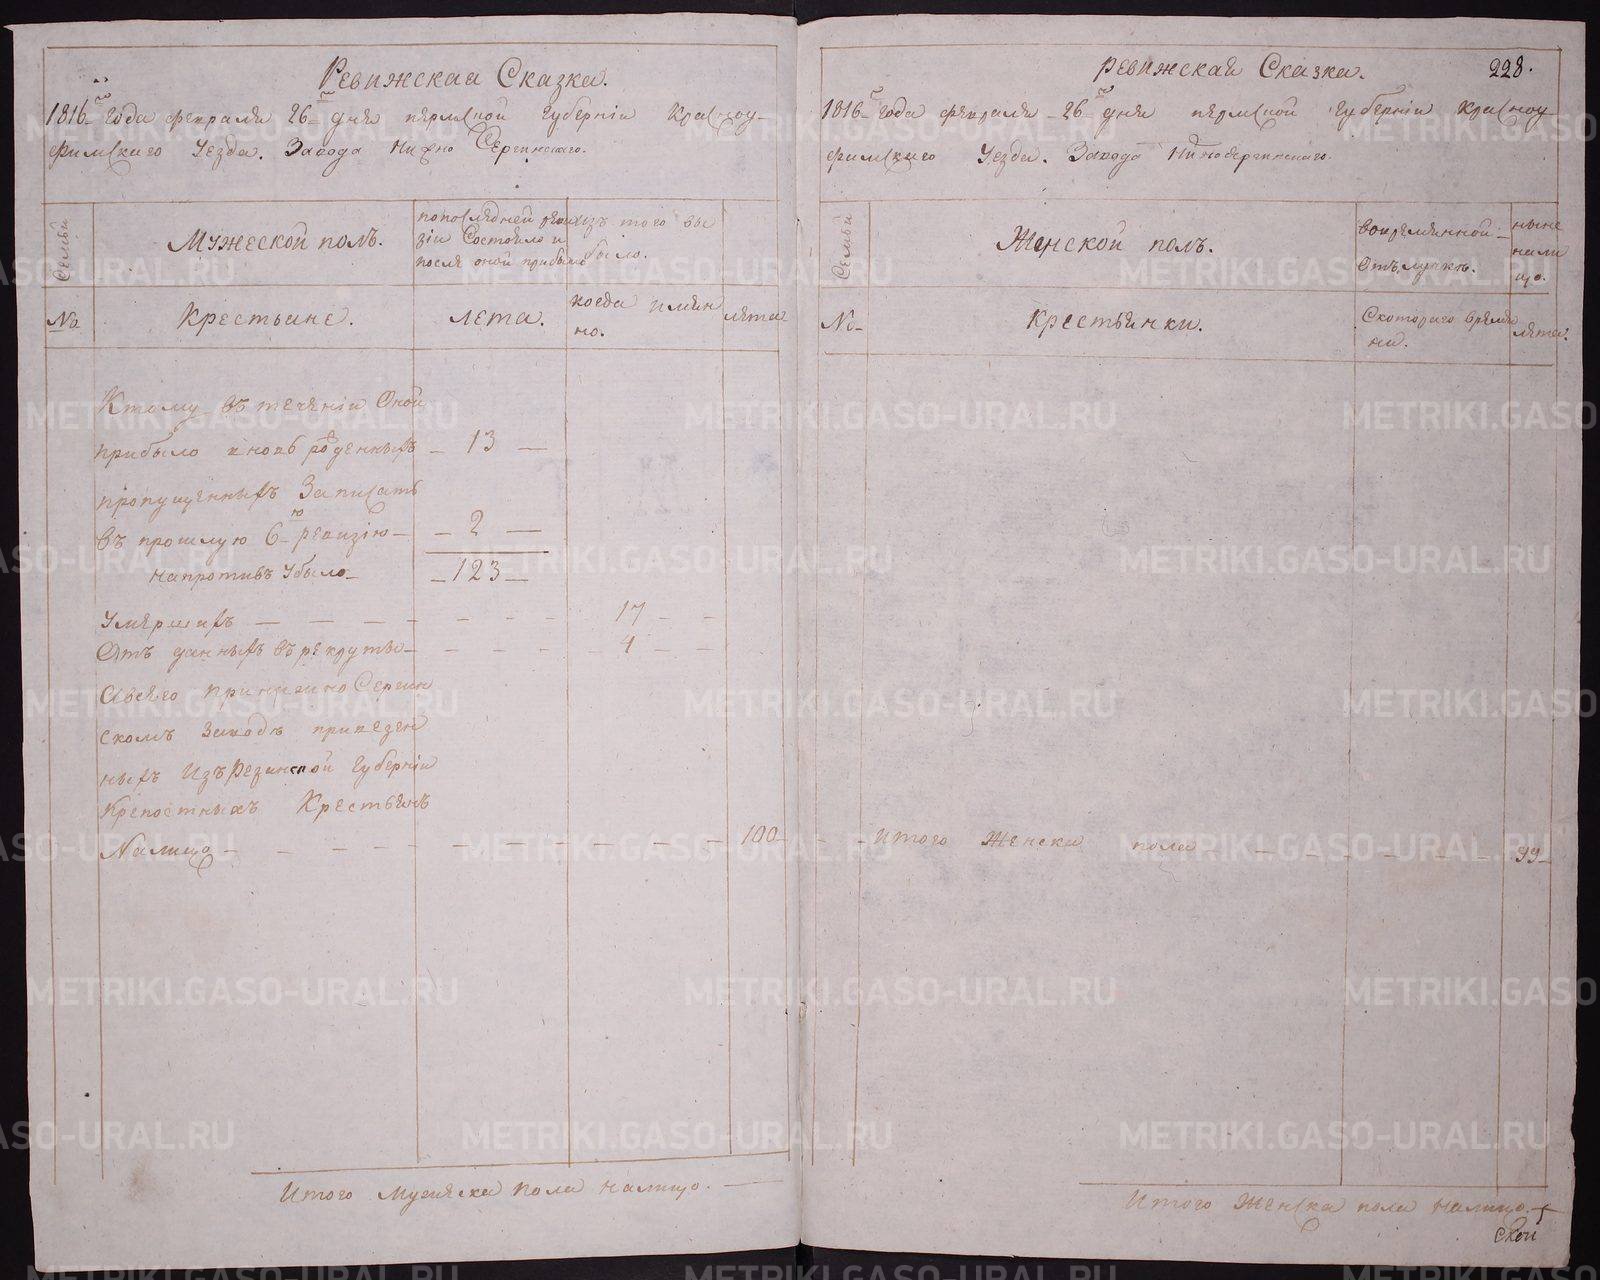 Ревижская Сказка.
1816го Года февраля 26го дня пермской Губернiи Красноу-
фимскаго Уезда. Завода Нижно Сергинскаго.
Семьи
Мужеской полъ.
попоследней реви
зiи Состояло и
после оной прибыло
изъ того вы
было.
№
Крестьяне.
Лета.
когда имян
но.
лета
Ктому въ теченiи Оной
прибыло вновь рожденныхъ - 13 -
пропущенныхъ Записать
въ прошлую 6ю ревизiю - 2 -
напротивъ Убыло - 123 -
Умершихъ - 17 -
Отъ данныхъ въ рекруты - 4 -
Авсего принижно Сергин
скомъ Заводе привезен
ныхъ Изъ Резанской Губернiи
Крепостныхъ Крестьянъ
Налицо - 100
Итого Мужеска пола налицо.
ревижская Сказка. 228.
1816го Года февраля 26го дня пермской Губернiи Красноу-
фимскаго Уезда. Завода Нижносергинскаго.
Семьи
Женской полъ.
вовременной
Отълучке.
ныне
нали
цо.
№
крестьянки.
Скотораго времен
ни.
лета.
Итого Женска пола - 99
Итого Женска пола налицо.